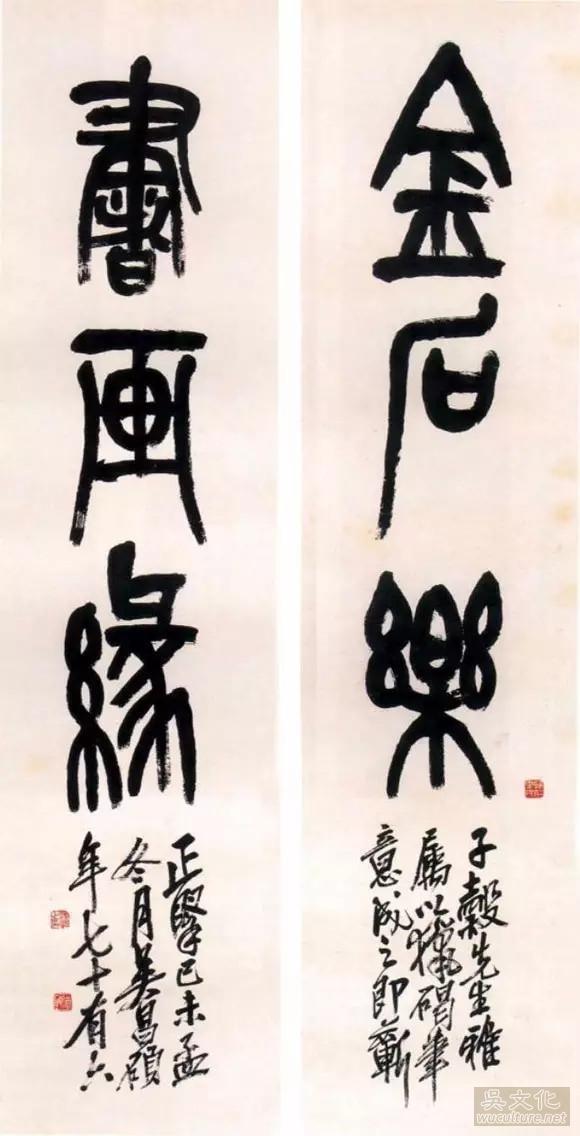 金石樂
子穀先生雅
屬以獵碣筆
意成之即蘄
書画緣
正擘己未孟
冬月吳昌碩
年七十有六
吳文化
www.wuculture.net